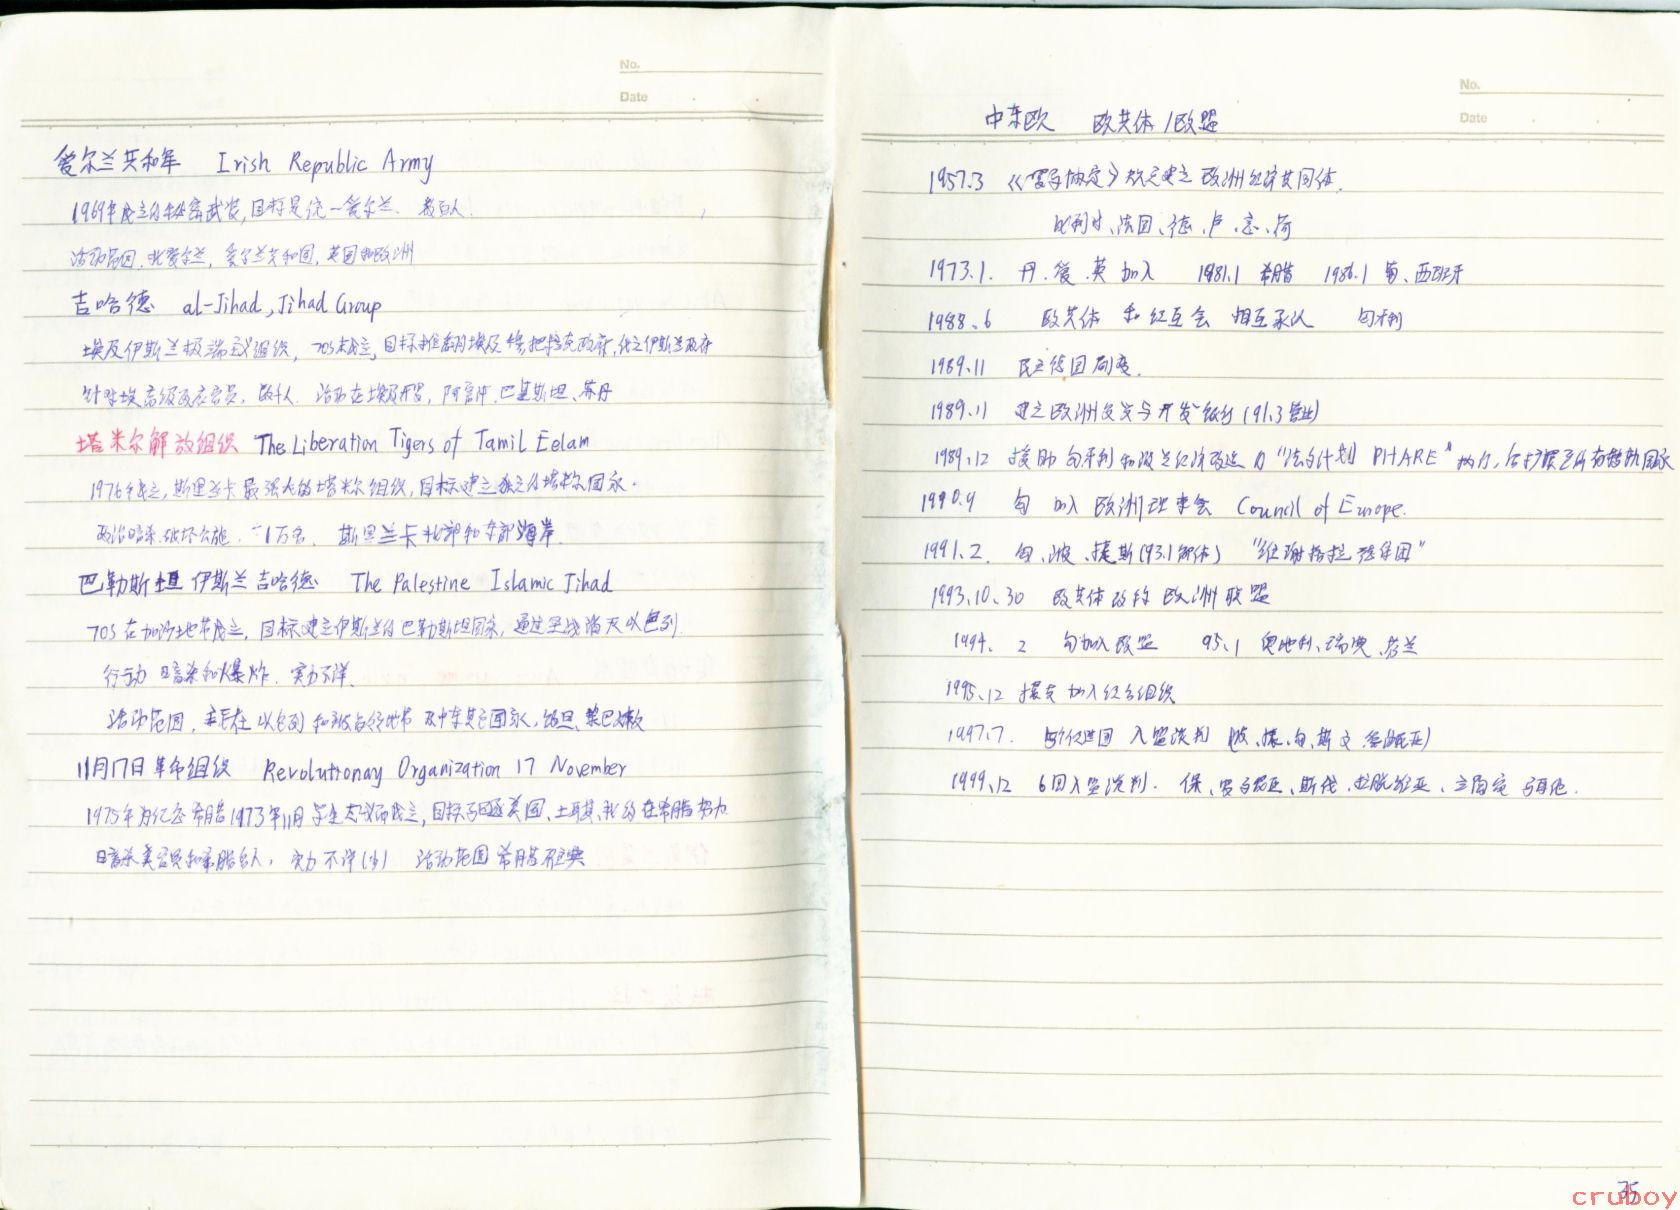 No.
Date
爱尔兰共和军 Irish Republic Army
1969年成立的秘密武装,目标是统一爱尔兰. 数百人.
活动范围.北爱尔兰,爱尔兰共和国,英国和欧洲
吉哈德 al-Jihad,Jihad Group
埃及伊斯兰极端主义组织,70s末成立,目标推翻埃及穆把拉克政府,代之伊斯兰政府
针对埃高级政府官员,数千人. 活动在埃及开罗,阿富汗.巴基斯坦、苏丹
塔米尔解放组织 The Liberation Tigers of Tamil Eelam
1976年成立,斯里兰卡最强大的塔米尔组织,目标建立独立的塔米尔国家.
政治暗杀.破坏公施. 1万名. 斯里兰卡北部和东部海岸.
巴勒斯坦伊斯兰吉哈德 The Palestine Islamic Jihad
70s在加沙地带成立,目标建立伊斯兰的巴勒斯坦国家,通过圣战消灭以色列.
行动 暗杀和爆炸. 实力不详.
活动范围,主要在以色列和被占领地带及中东其它国家,约旦、黎巴嫩
11月17日革命组织 Revolutionay Organization 17 November
1975年为纪念希腊1973年11月学生起义而成立,目标驱逐美国、土耳其、北约在希腊势力.
暗杀美官员和希腊名人, 实力不详(少) 活动范围希腊雅典
No.
Date
中东欧 欧共体/欧盟
1957.3 《罗马协定》 建立欧洲经济共同体.
比利时、法国、德、卢、意、荷
1973.1. 丹.爱.英加入 1981.1 希腊 1986.1 葡、西班牙
1988.6 欧共体和经互会相互承认 匈牙利
1989.11 民主德国剧变.
1989.11 建立欧洲投资与开发银行(91.3营业)
1989.12 援助匈牙利和波兰经济改造的"法尔计划 PHARE"执行,后扩展至所有转轨国家
1990.9 匈加入欧洲理事会 Council of Europe.
1991.2. 匈、波、捷斯(93.1解体) "维谢格拉强集团"
1993.10.30 欧共体改称欧洲联盟
1994. 2 匈加入欧盟 95.1 奥地利、瑞典、芬兰
1995.12 捷克加入经合组织
1997.7. 入盟谈判 (波、捷、匈、斯文、爱沙尼亚)
1999.12 6国入盟谈判. 保、罗马尼亚、斯伐、拉脱维亚、立陶宛 马耳他.
35
cruboy